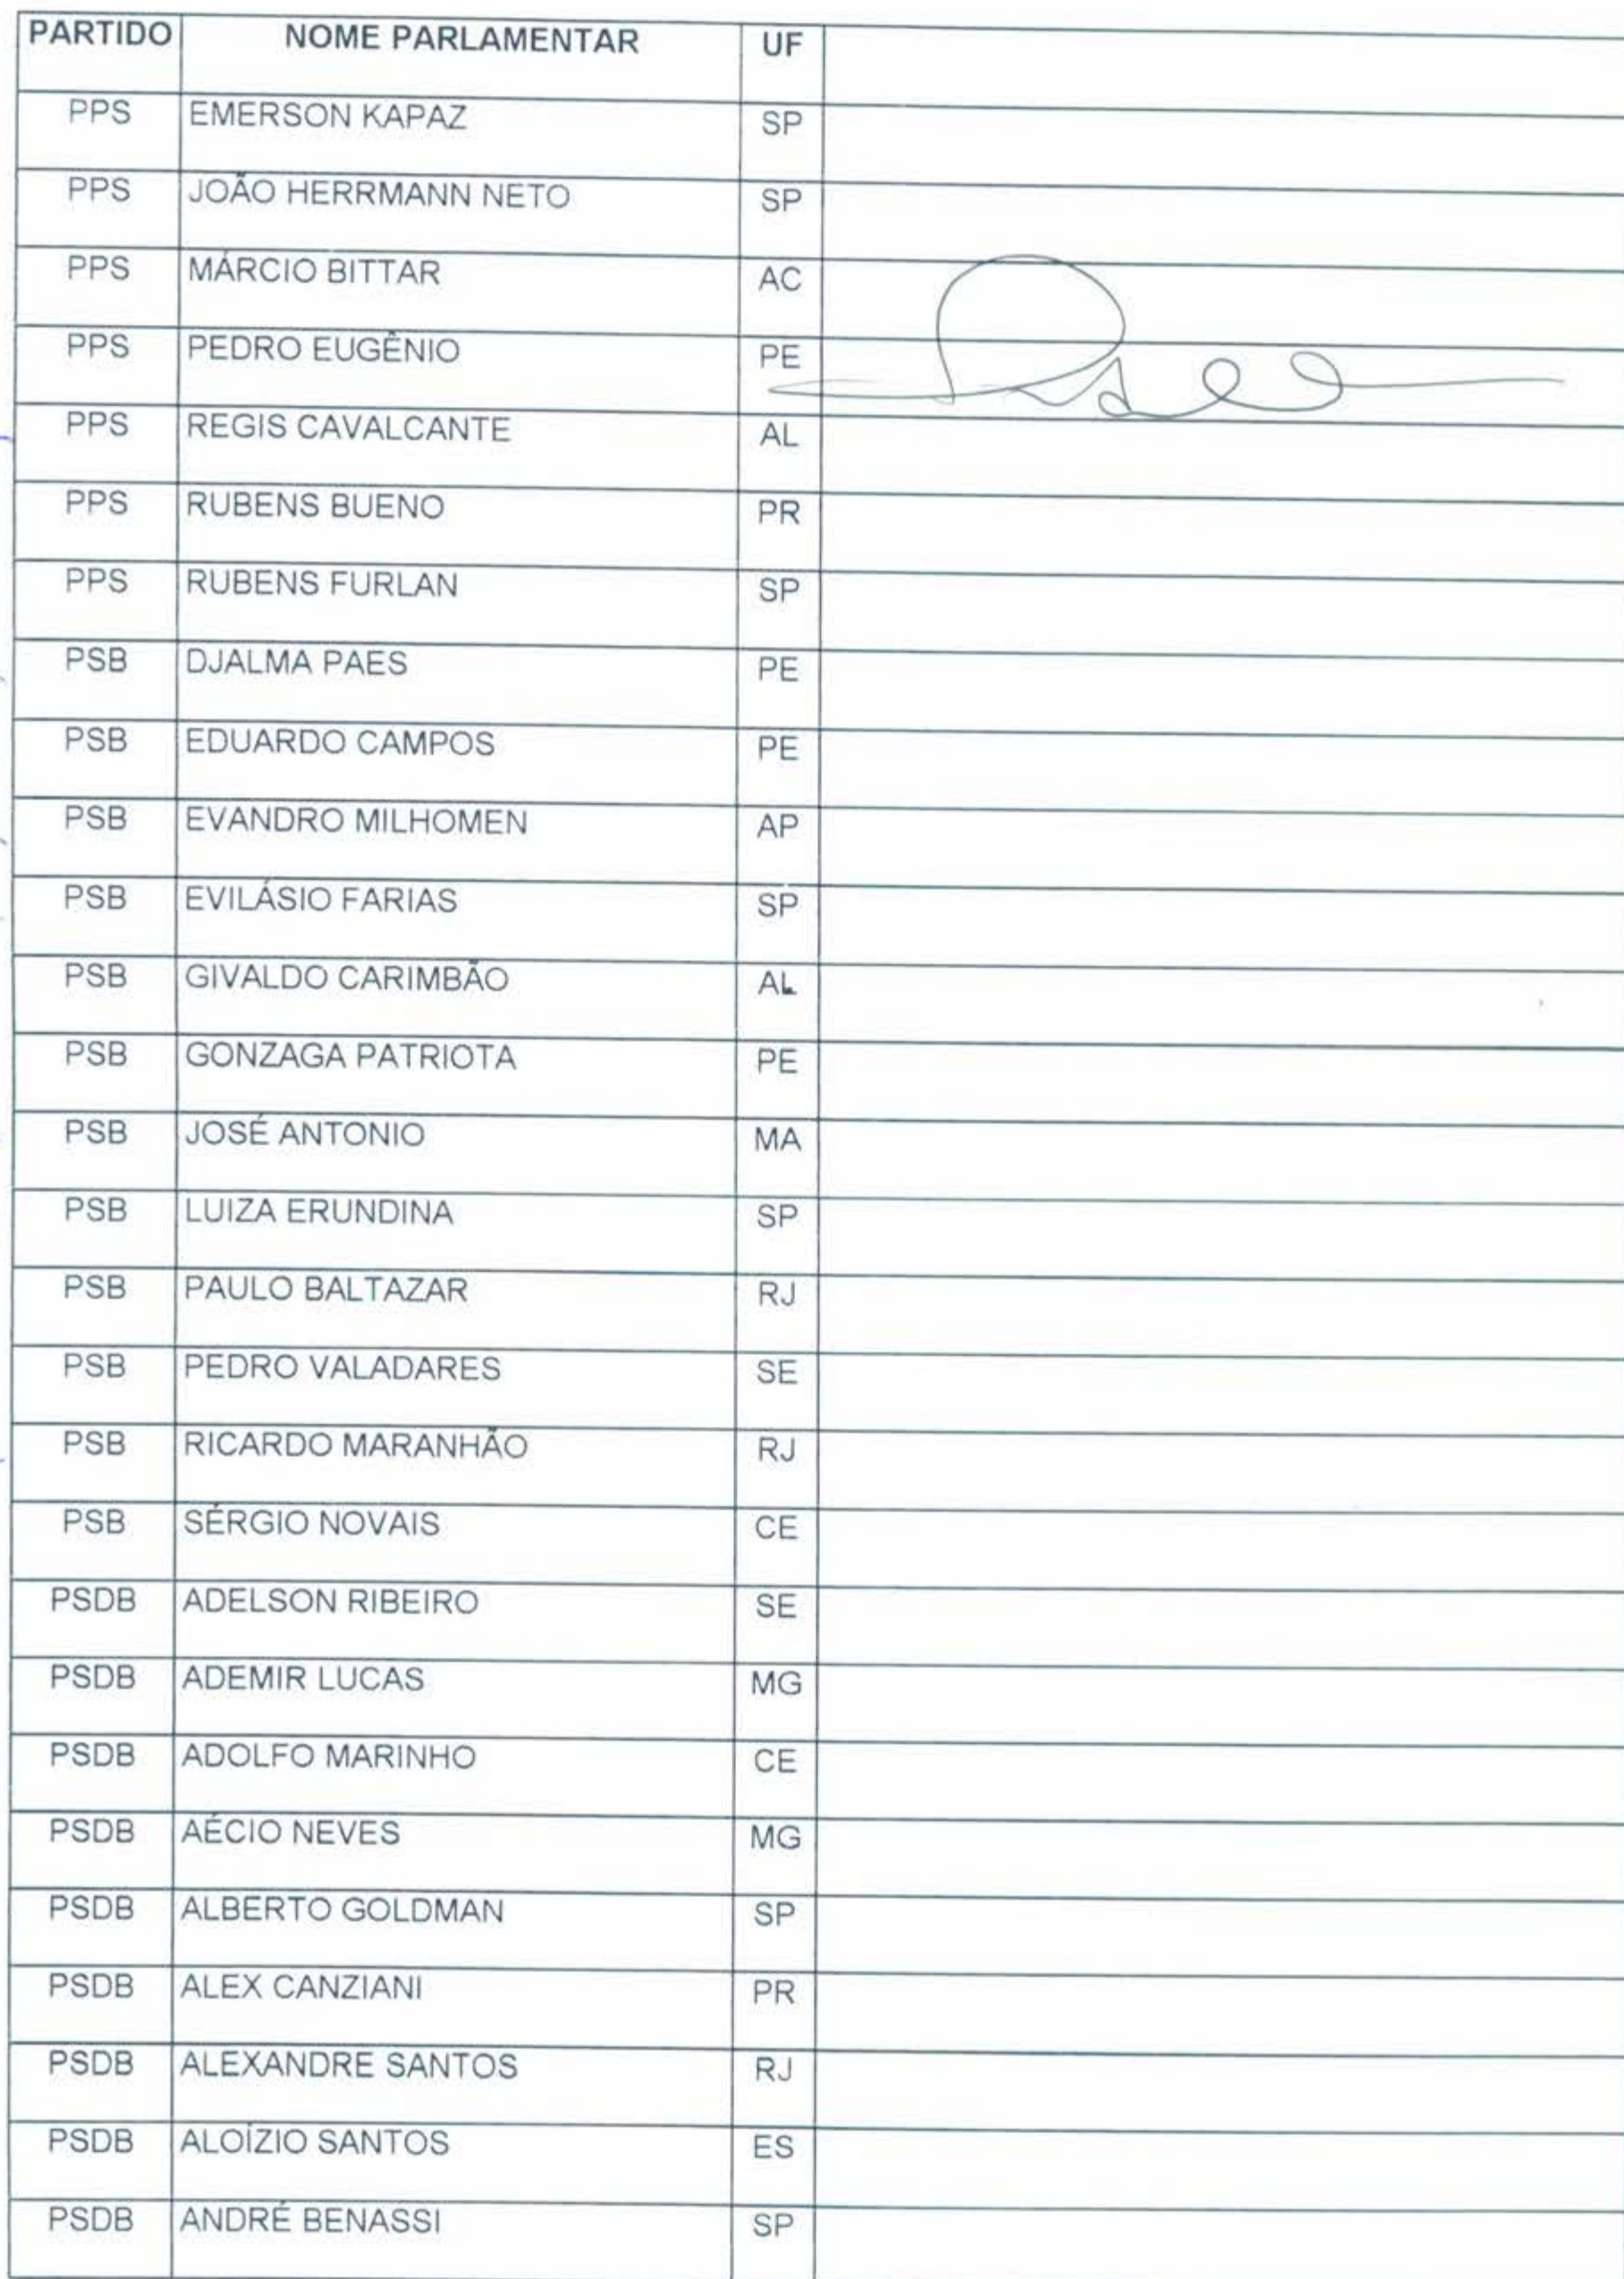 PARTIDO NOME PARLAMENTAR UF
PPS EMERSON KAPAZ SP
PPS JOÃO HERRMANN NETO SP
PPS MÁRCIO BITTAR AC
PPS PEDRO EUGÊNIO PE
PPS REGIS CAVALCANTE AL
PPS RUBENS BUENO PR
PPS RUBENS FURLAN SP
PSB DJALMA PAES PE
PSB EDUARDO CAMPOS PE
PSB EVANDRO MILHOMEN AP
PSB EVILÁSIO FARIAS SP
PSB GIVALDO CARIMBÃO AL
PSB GONZAGA PATRIOTA PE
PSB JOSÉ ANTONIO MA
PSB LUIZA ERUNDINA SP
PSB PAULO BALTAZAR RJ
PSB PEDRO VALADARES SE
PSB RICARDO MARANHÃO RJ
PSB SÉRGIO NOVAIS CE
PSDB ADELSON RIBEIRO SE
PSDB ADEMIR LUCAS MG
PSDB ADOLFO MARINHO CE
PSDB AÉCIO NEVES MG
PSDB ALBERTO GOLDMAN SP
PSDB ALEX CANZIANI PR
PSDB ALEXANDRE SANTOS RJ
PSDB ALOÍZIO SANTOS ES
PSDB ANDRÉ BENASSI SP